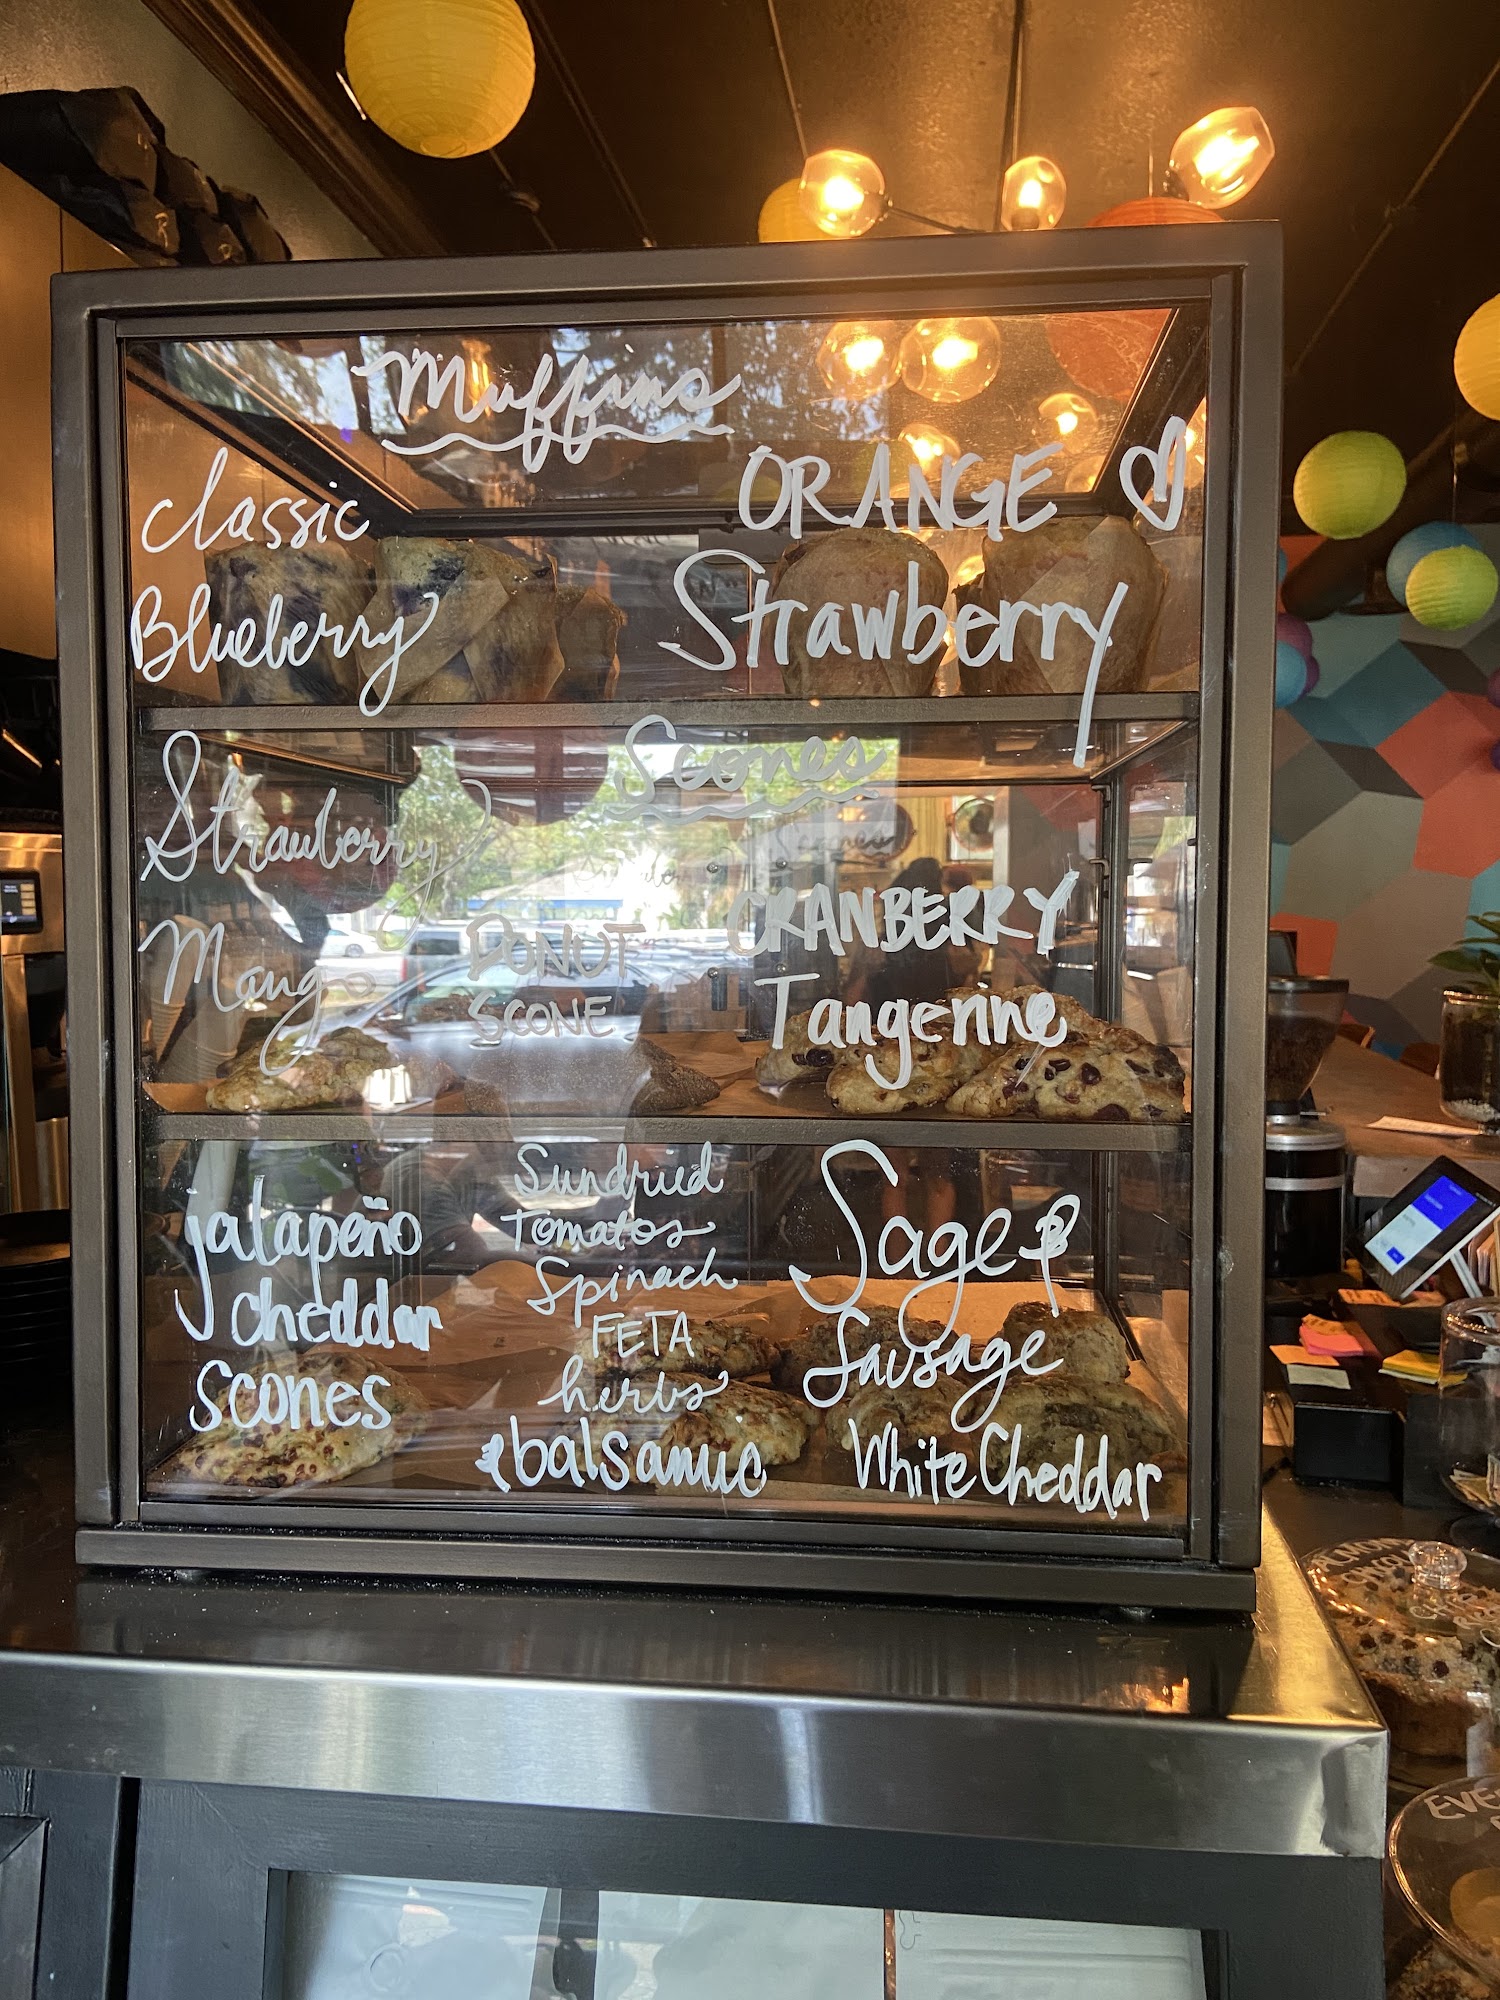 Muffins
classic
Blueberry
ORANGE
Strawberry
Scones
Strawberry
Mango
DONUT
SCONE
CRANBERRY
Tangerine
jalapeño
cheddar
scones
Sundried
Tomatos
Spinach
FETA
herbs
& balsamic
Sage &
Sausage
White Cheddar